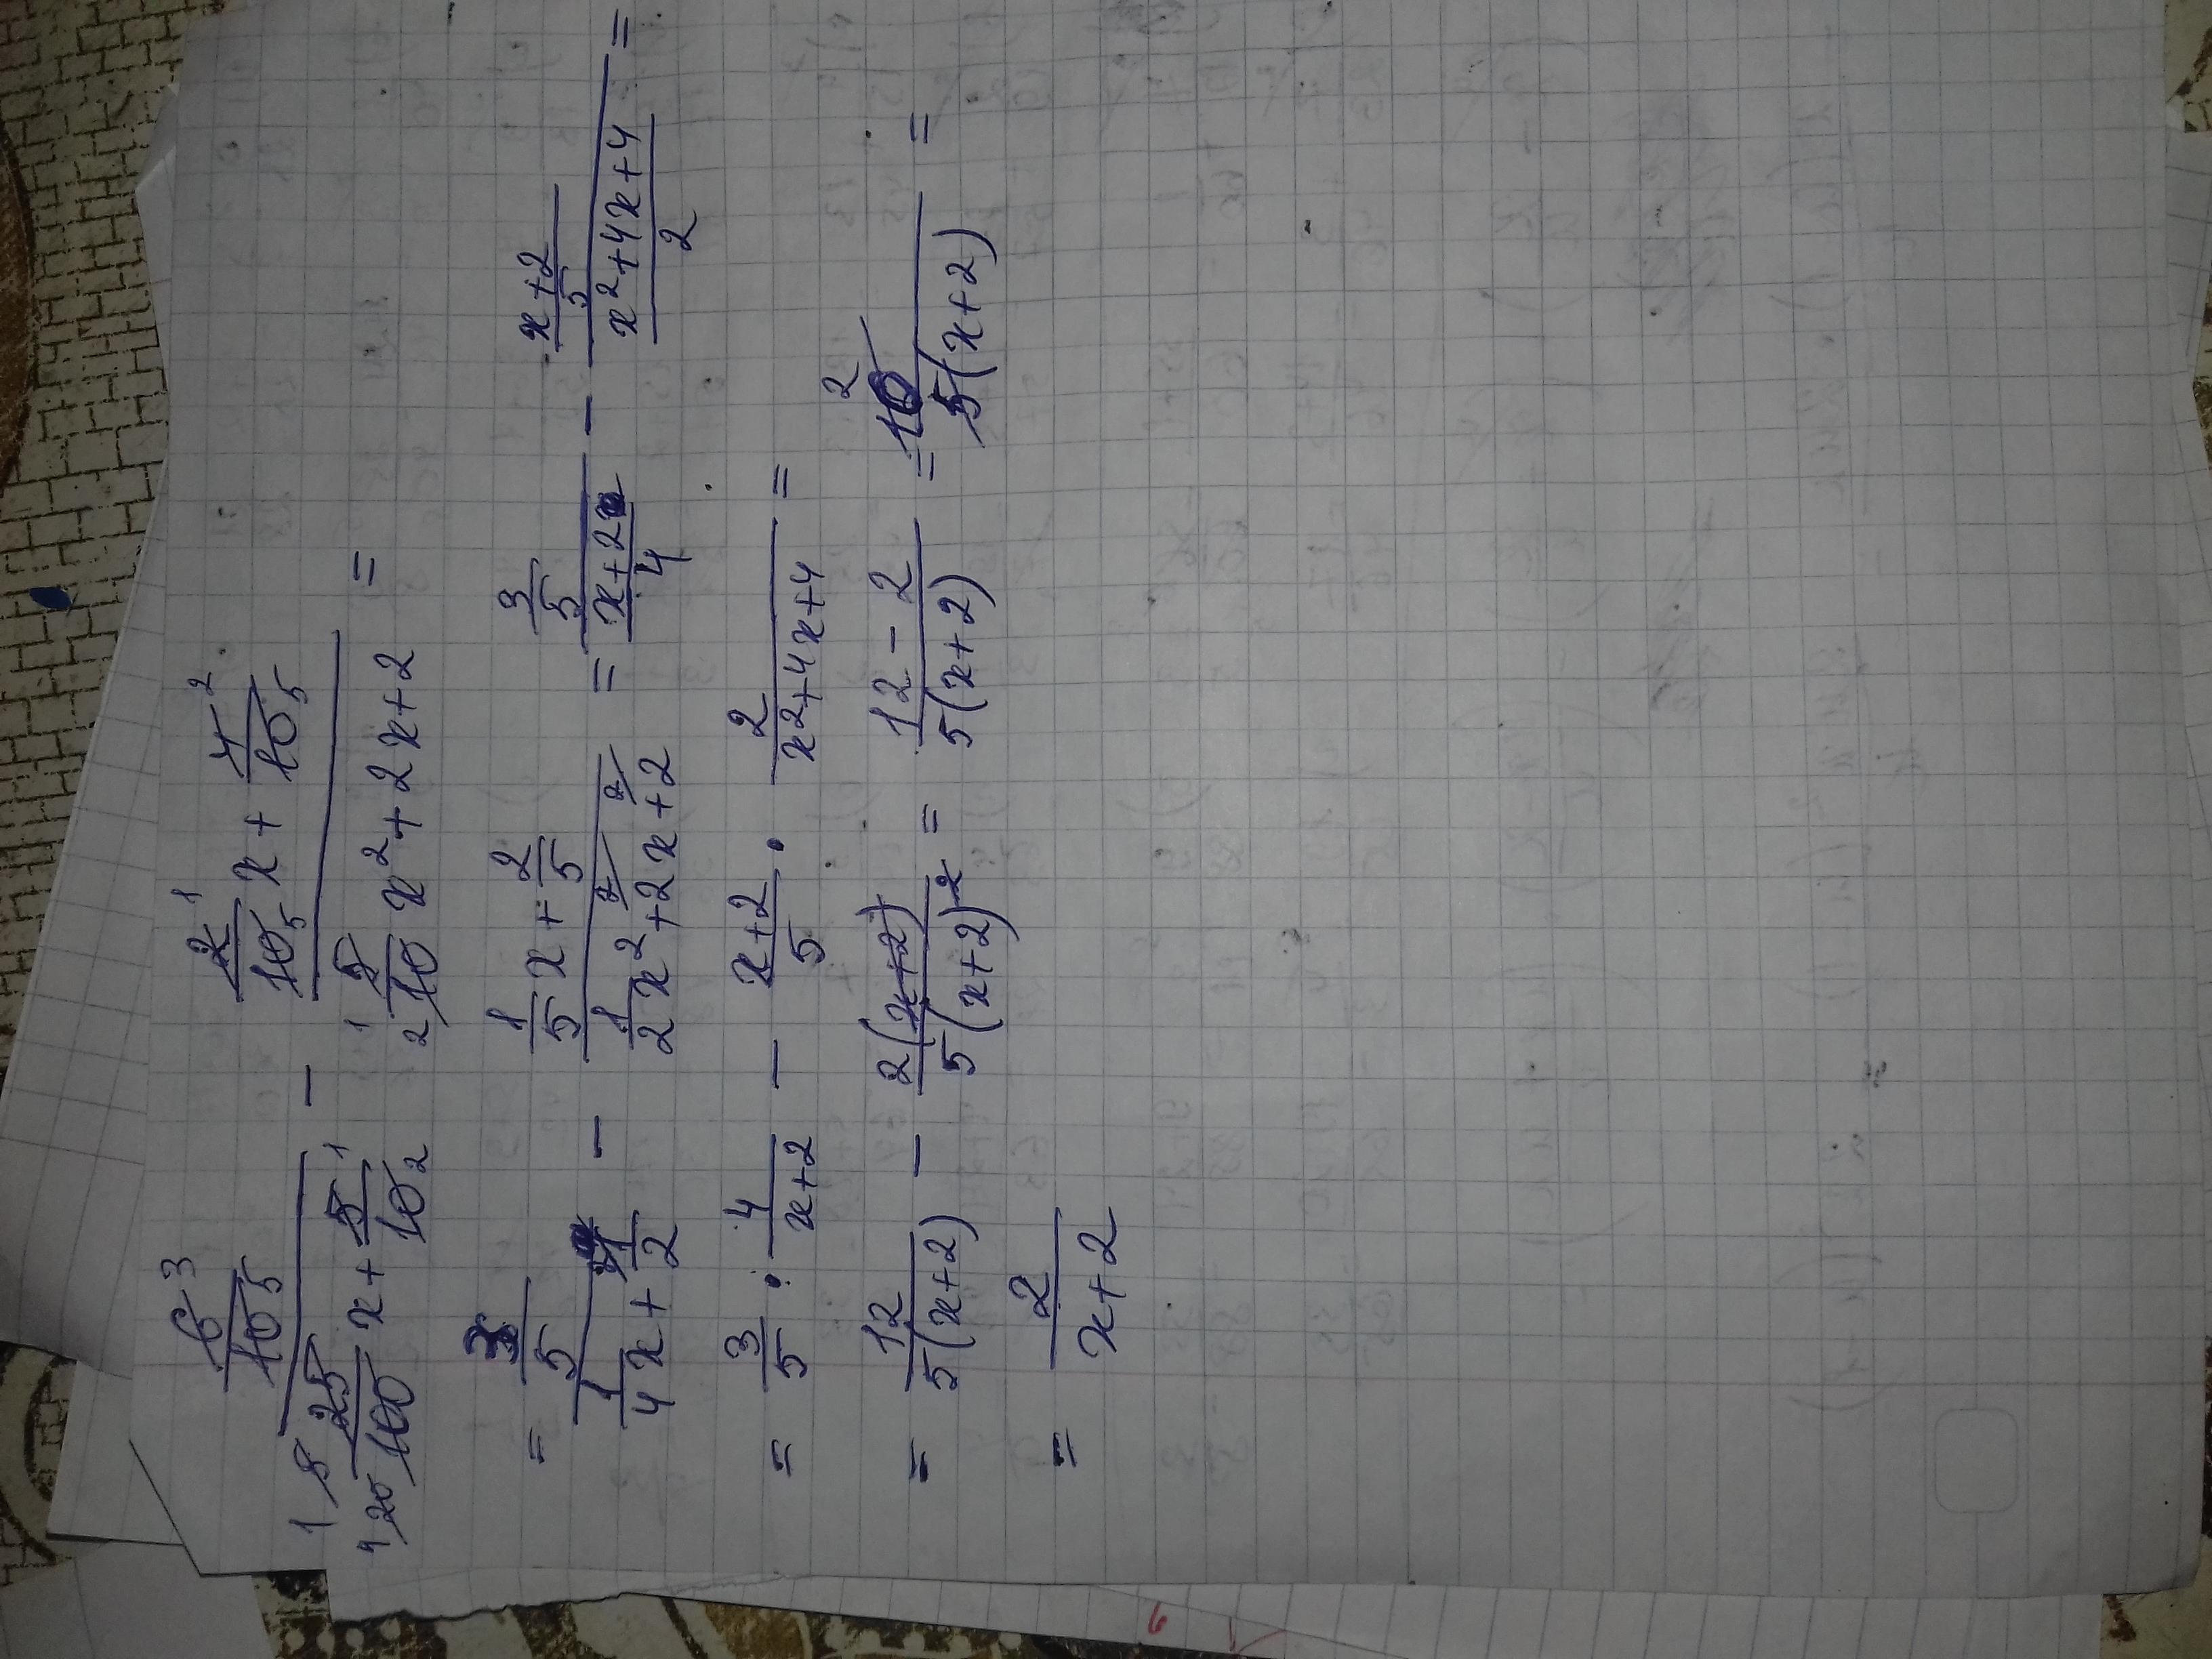 6/10 3/5 / (25/100 5/20 1/4 x + 5/10 1/2) − (2/10 1/5 x + 4/10 2/5) / (5/10 1/2 x² + 2x + 2) =
= 3/5 / (1/4 x + 1/2) − (1/5 x + 2/5) / (1/2 x² + 2x + 2) = 3/5 / ((x+2)/4) − ((x+2)/5) / ((x²+4x+4)/2) =
= 3/5 · 4/(x+2) − (x+2)/5 · 2/(x²+4x+4) =
= 12/(5(x+2)) − 2(x+2)/(5(x+2)²) = (12−2)/(5(x+2)) = 10 2/(5(x+2)) =
= 2/(x+2)
6